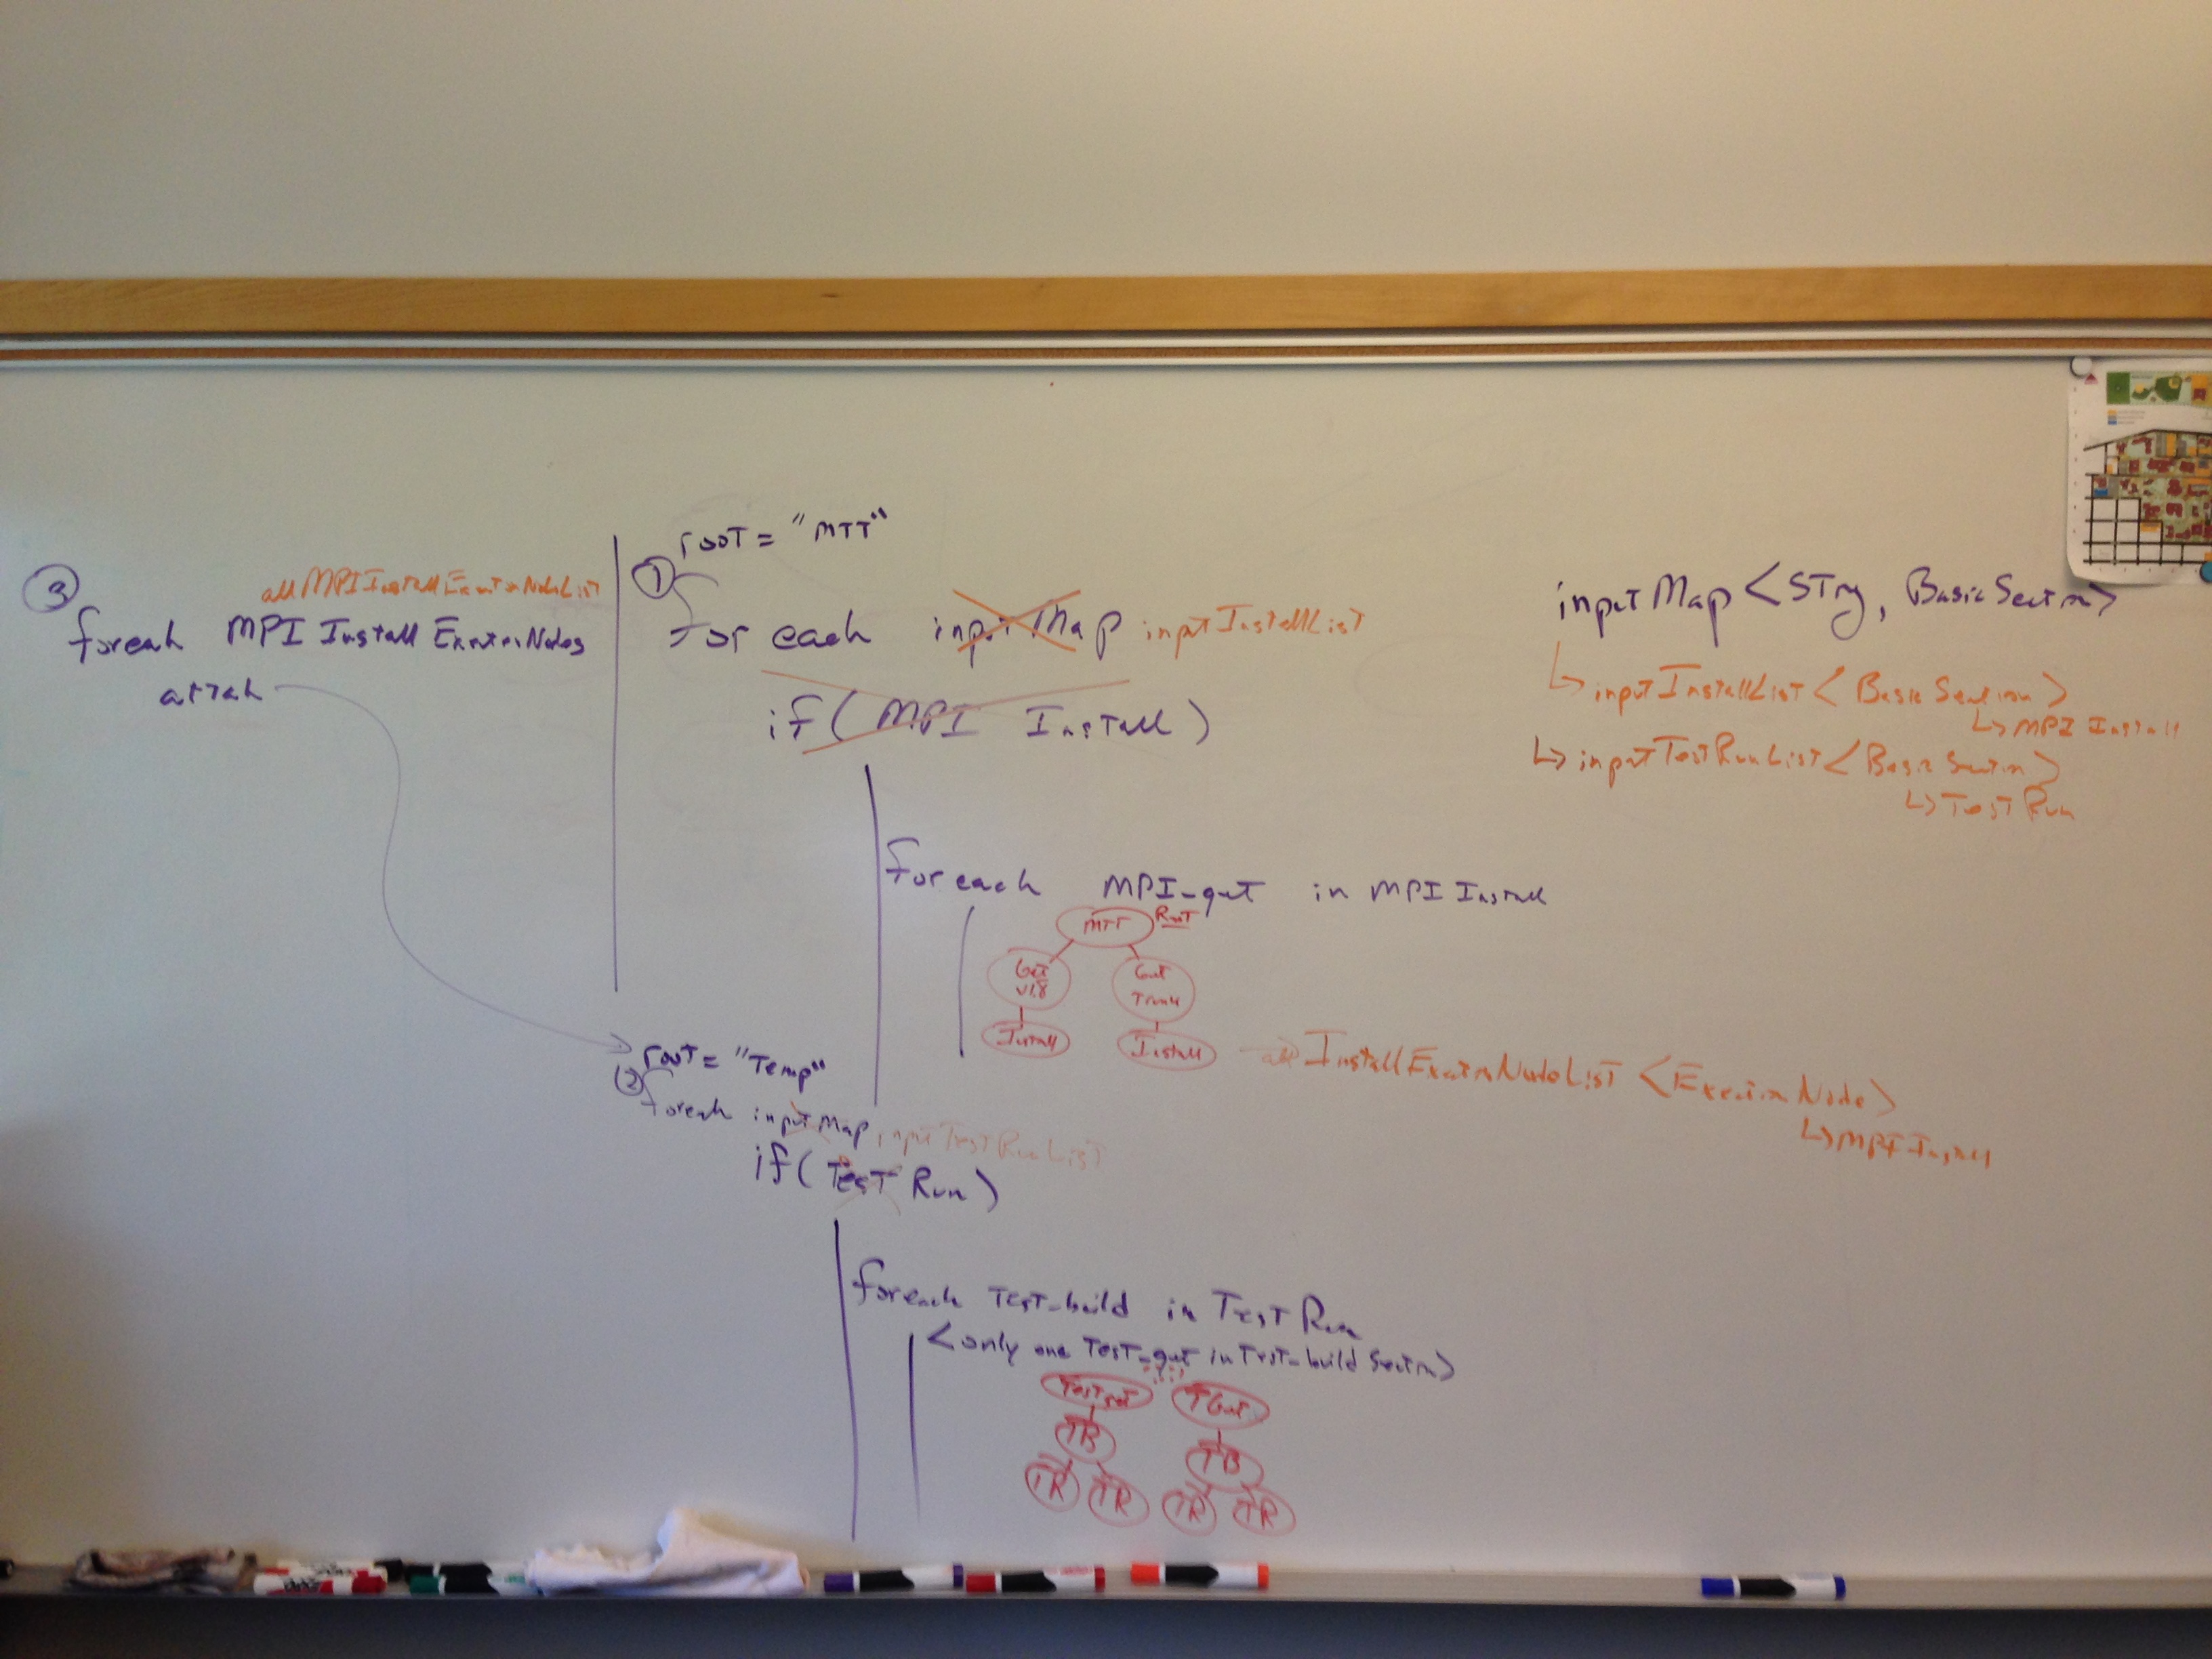 ③
allMPIInstallExecutionNodeList
foreach MPI Install ExecutionNodes
attach
root = "MTT"
①
for each inputMap inputInstallList
if ( MPI Install )
for each MPI_get in MPI Install
MTT Root
Get v1.8
Get Trunk
Install
Install
all InstallExecutionNodeList <ExecutionNode>
↳ MPI Install
root = "Temp"
②
foreach inputMap inputTestRunList
if ( Test Run )
foreach Test_build in Test Run
<only one Test_get in Test_build Section>
Test get
TGet
TB
TB
TR TR TR TR
inputMap <String, BasicSection>
↳ inputInstallList < Basic Section >
↳ MPI Install
↳ inputTestRunList < Basic Section >
↳ Test Run